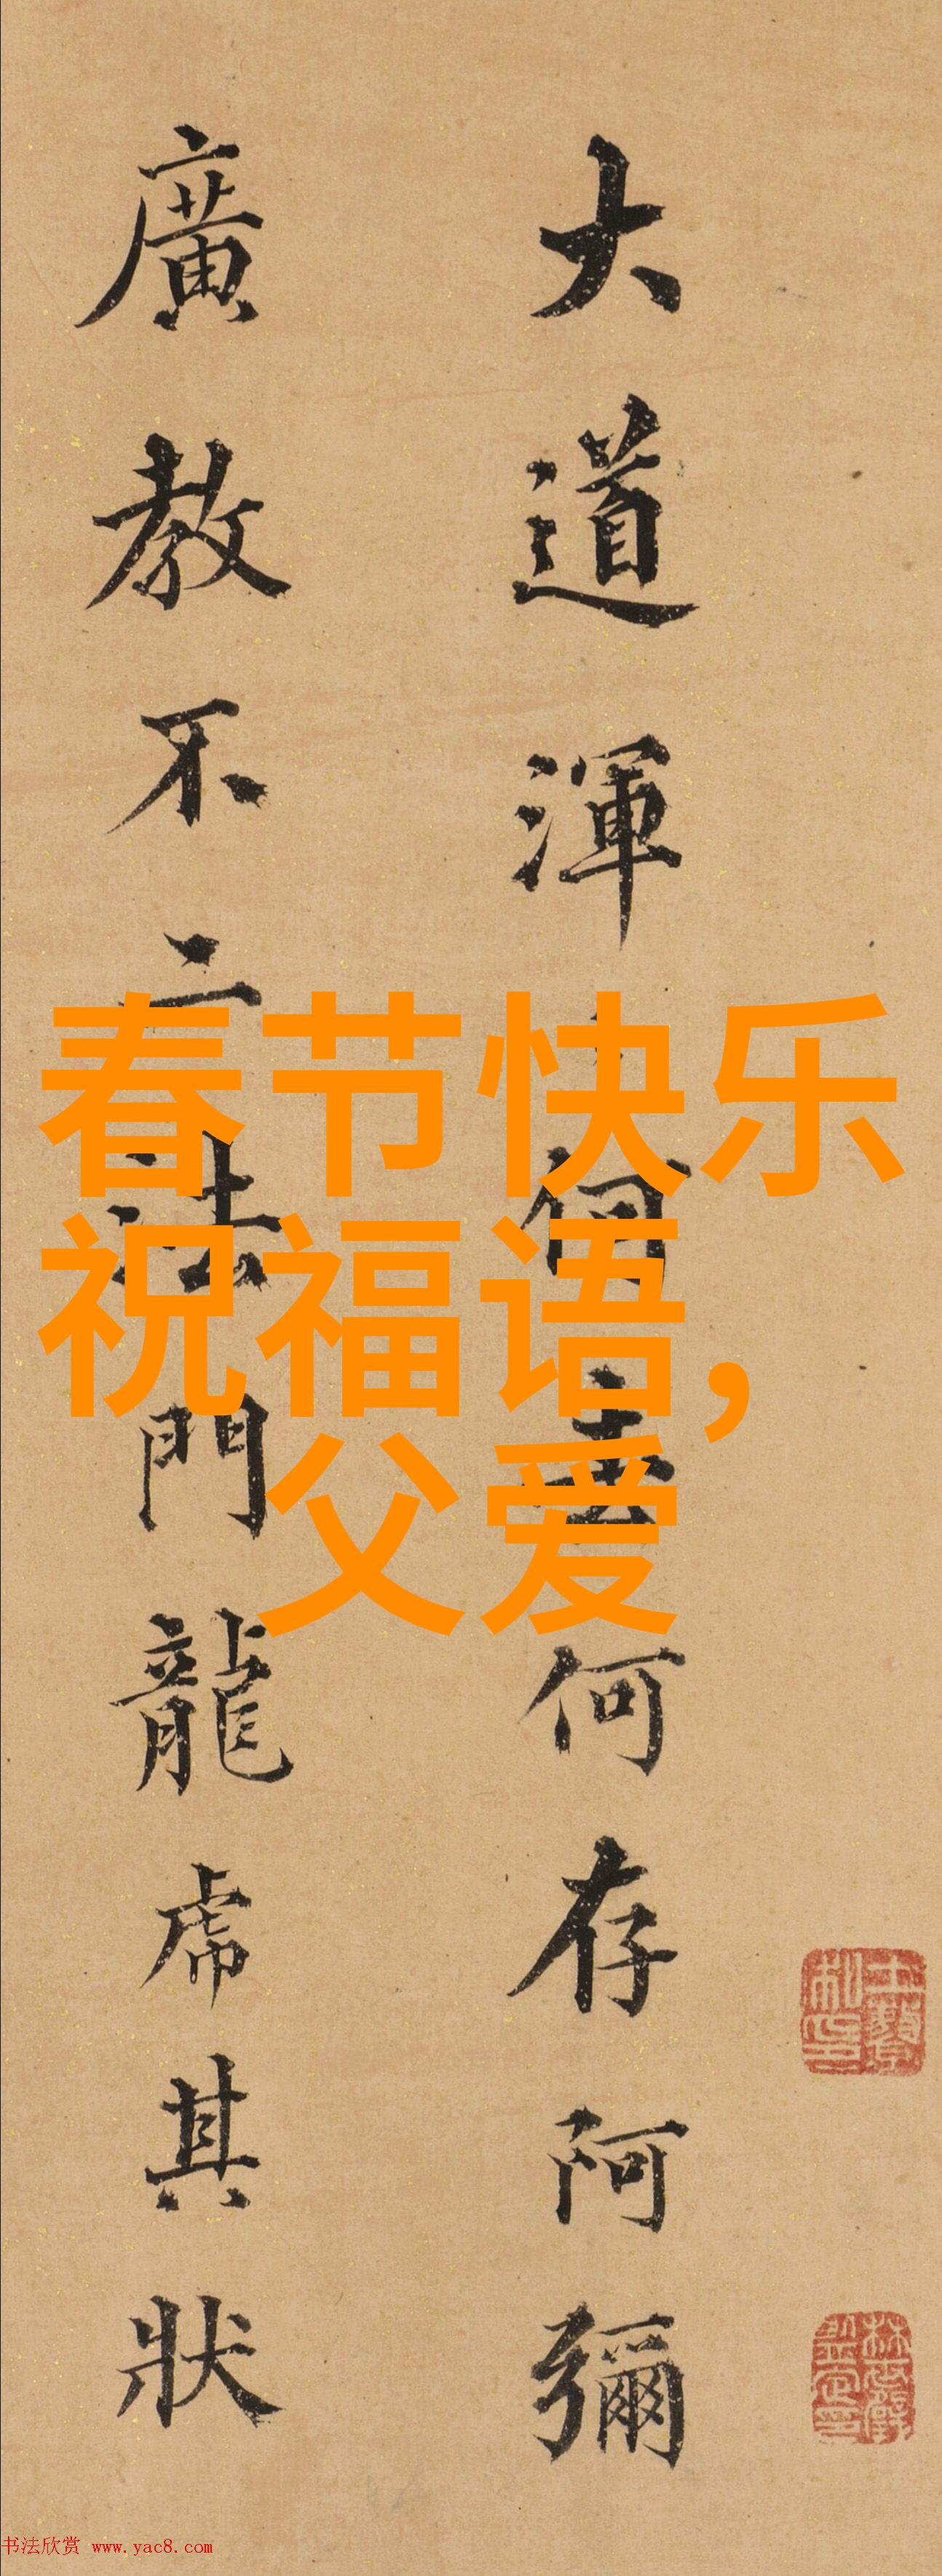 大道渾何去何存阿彌
廣教不二法門龍虎其狀
春节快乐
祝福语,
父爱
书法欣赏 www.yac8.com